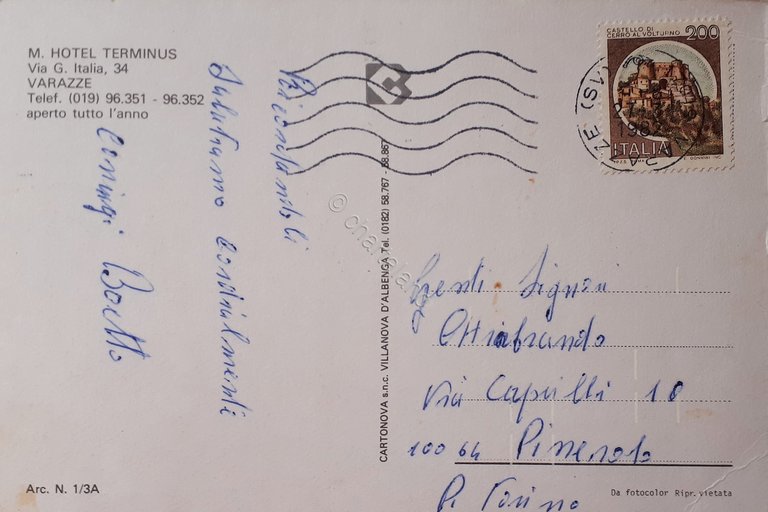 M. HOTEL TERMINUS
Via G. Italia, 34
VARAZZE
Telef. (019) 96.351 - 96.352
aperto tutto l'anno
Ricordandoli
Salutiamo cordialmente
coniugi
CARTONOVA s.n.c. VILLANOVA D'ALBENGA Tel. (0182) 58.767 - 58.867
CASTELLO DI
CERRO AL VOLTURNO
200
ITALIA
Gent. Signori
Chiabrando
Via Caprilli 18
10064 Pinerolo
Pr. Torino
Arc. N. 1/3A
Da fotocolor Ripr. vietata